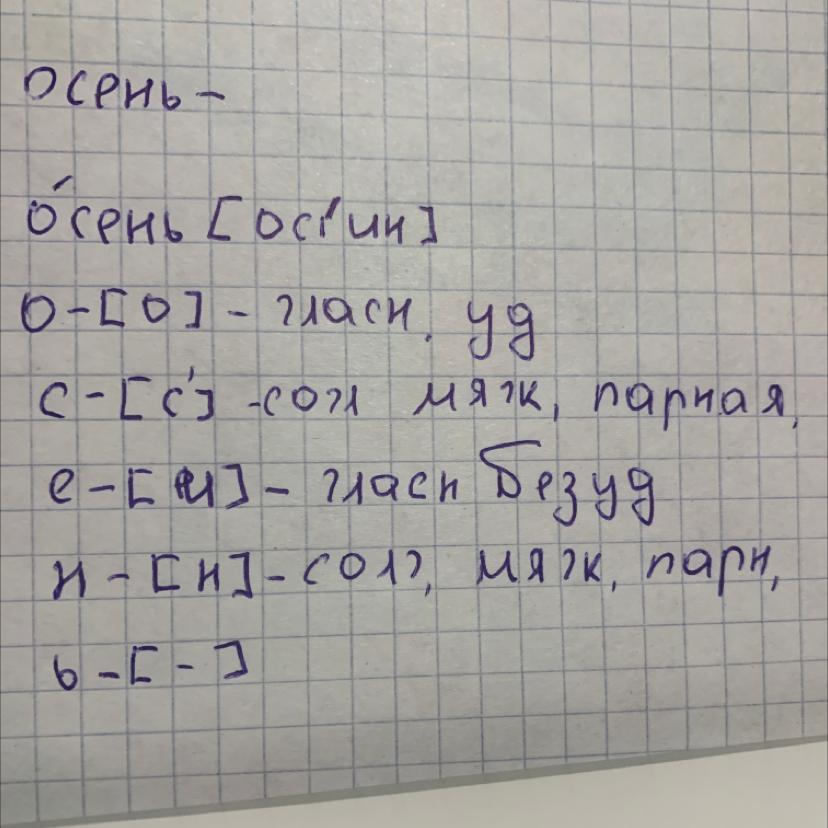 осень –
о́сень [ос'ин]
о – [о] – гласн, уд
с – [с'] - согл мягк, парная,
е – [и] – гласн безуд
н – [н] – согл, мягк, парн,
ь – [ - ]